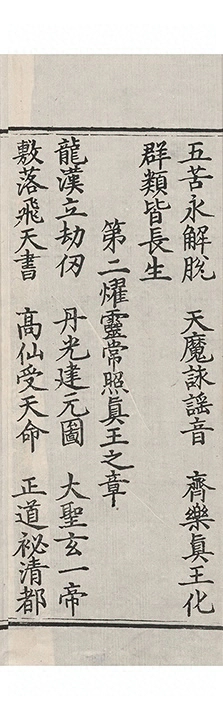 五苦永解脫 天魔詠謡音 齊樂眞王化
群類皆長生
第二燿靈常照眞王之章
龍漢立劫仞 丹光建元圖 大聖玄一帝
敷落飛天書 高仙受天命 正道祕清都